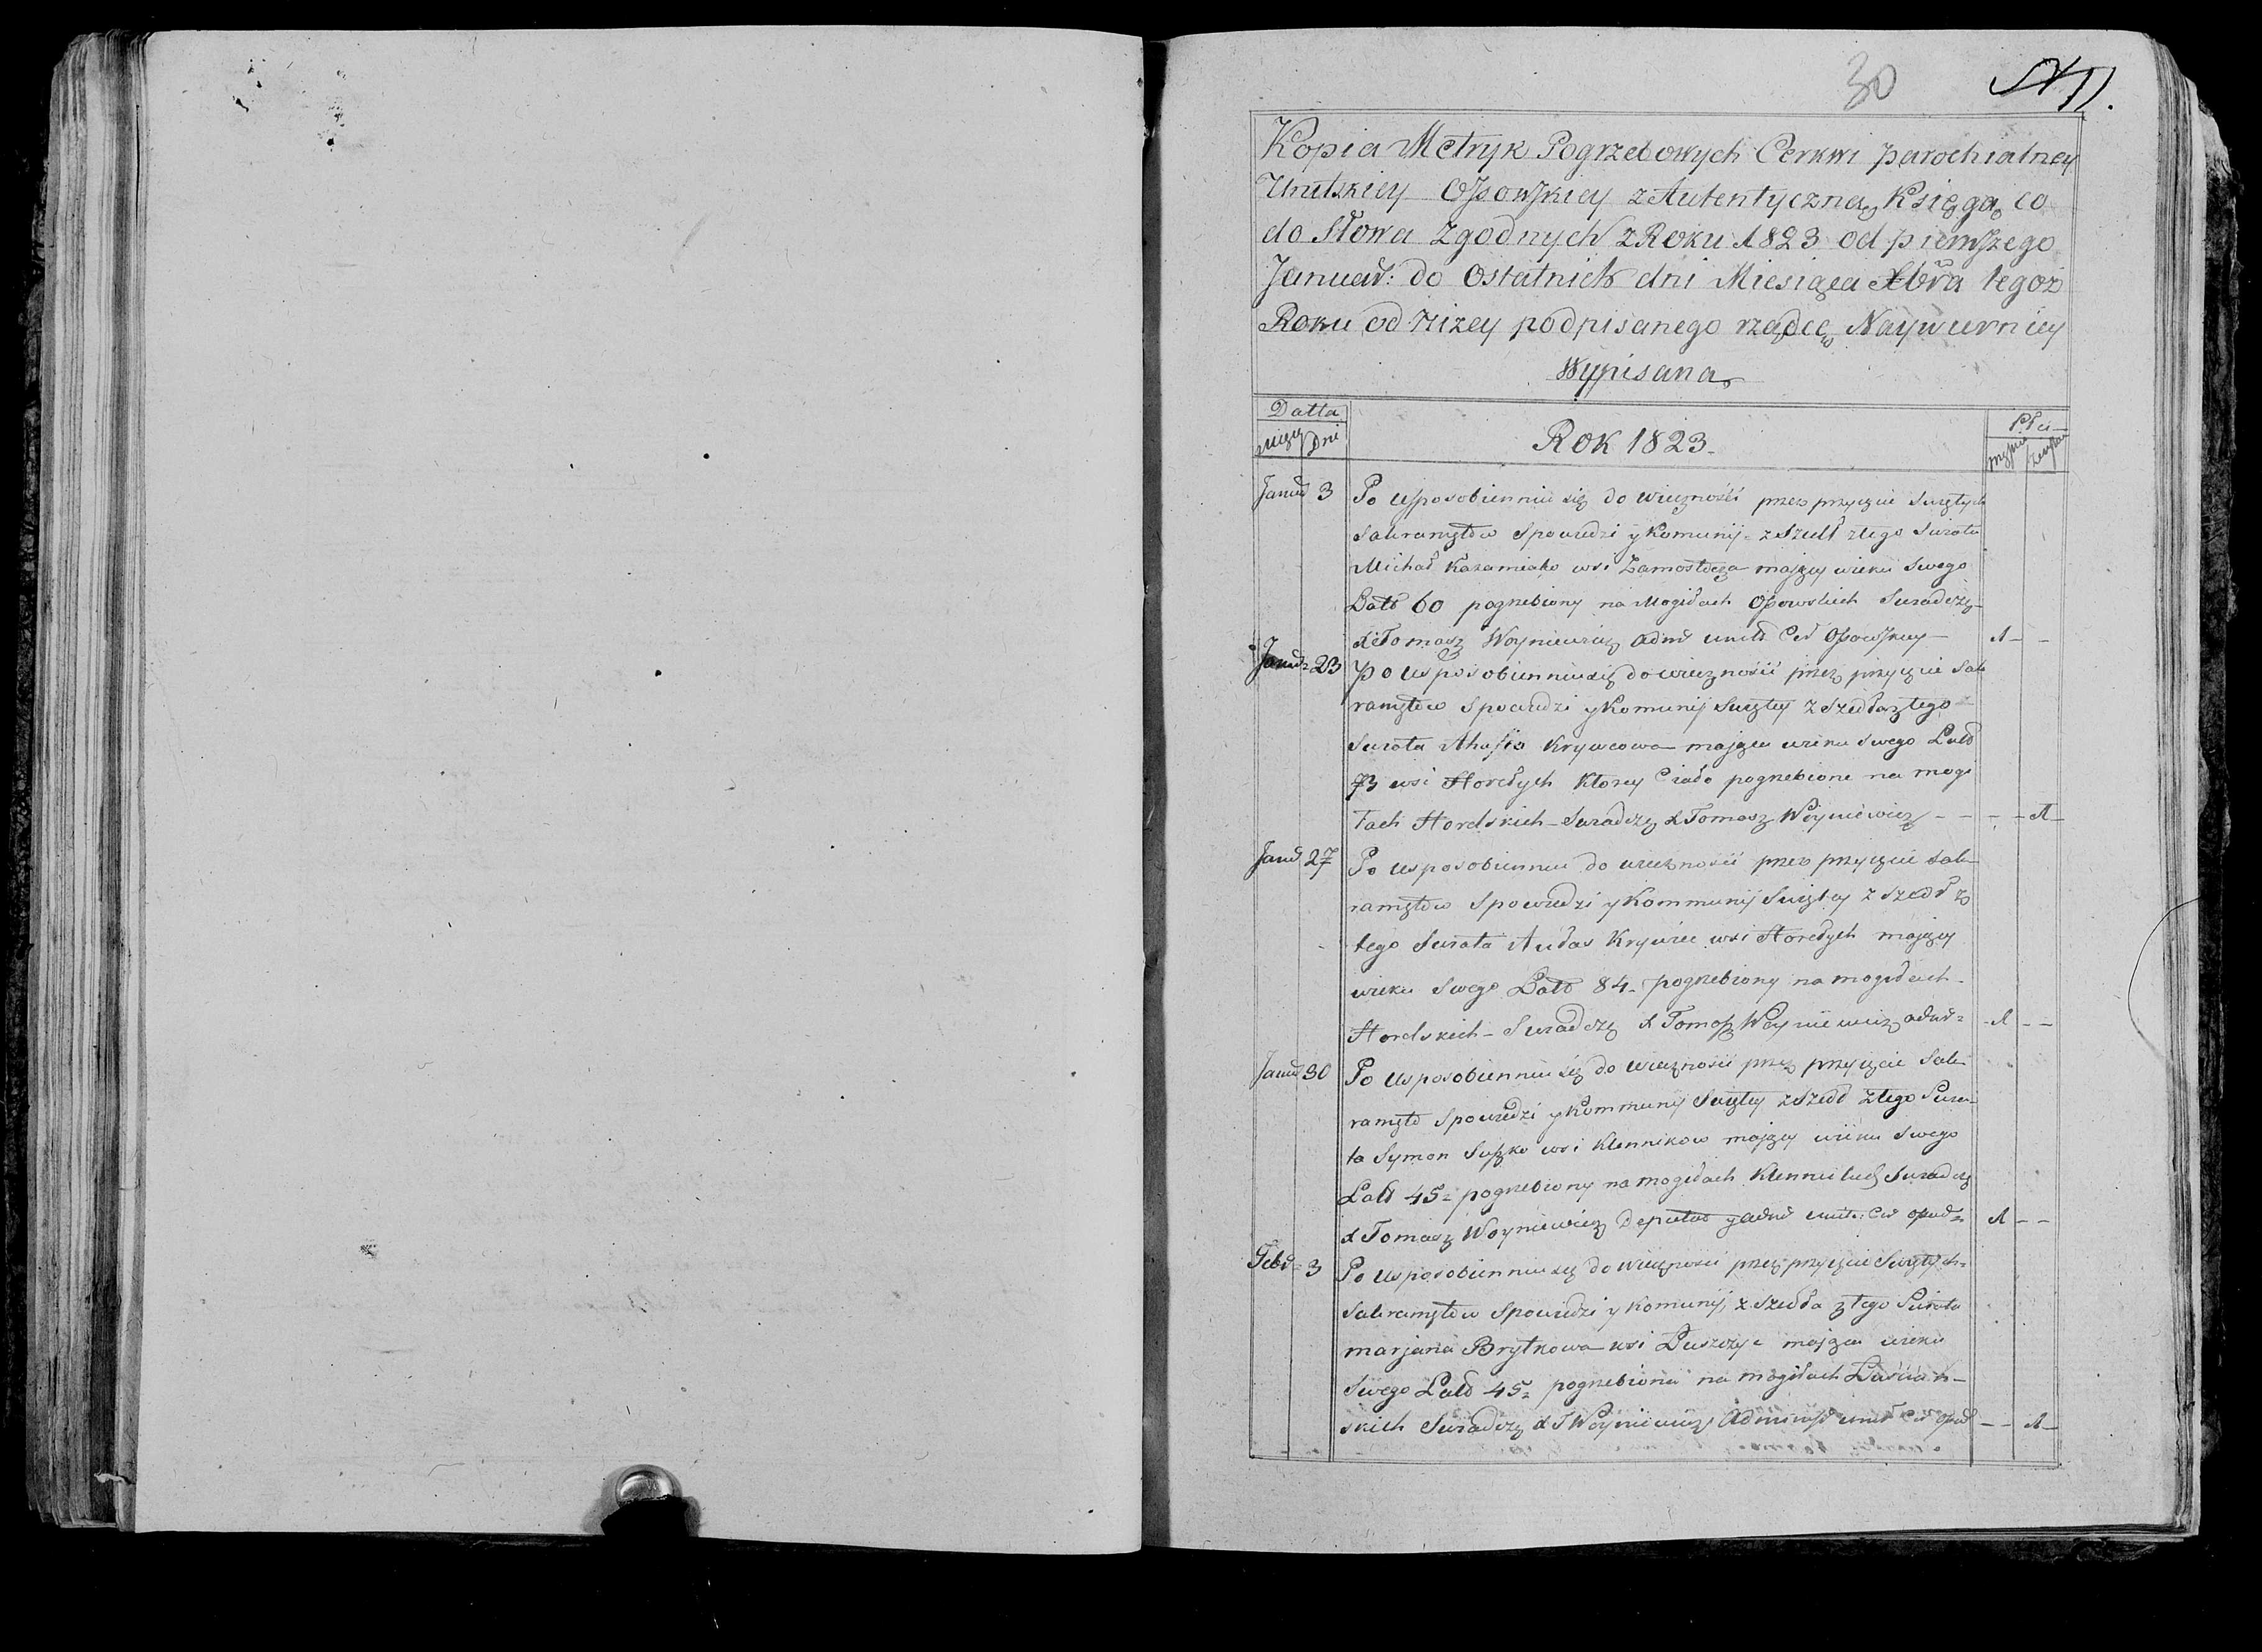 30
N 11.
Kopia Metryk Pogrzebowych Cerkwi parochialney
Unitskiey Ossowskiey z Autentyczną Księgą co
do Słowa zgodnych z Roku 1823 od pierwszego
Januar: do Ostatnich dni Miesiąca Xbra tegoż
Roku od niżey podpisanego rządcę Naywierniey
Wypisana
Datta
Dni
ROK 1823.
Płci
Januar 3 Po usposobienniu się do wieczności przez przyięcie Swiętych
Sakramętow Spowiedzi y Komunij zszedł z tego Swiata
Michał Kazamiako wsi Zamostocza maiący wieku Swego
Lat 60 pogrzebiony na Mogiłach Ossowskich Swiadczę
X Tomasz Woyniewicz Adm unit Cer Ossowskiey 1
Januar 23 Po usposobienniu się do wieczności przez przyięcie Sak
ramętow Spowiedzi y Komunij Swiętey zszedła z tego
Swiata Ahafia Krywcowa maiąca wieku swego Lat
73 wsi Horełych ktorey Ciało pogrzebione na mogi
łach Horelskich Swiadczę X Tomasz Woyniewicz 1
Januar 27 Po usposobienniu do wieczności przez przyięcie Sak
ramętow Spowiedzi y Kommunij Swiętey zszedł z
tego Swiata Audas Krywiec wsi Horełych maiący
wieku Swego Lat 84 pogrzebiony na mogiłach
Horelskich Swiadczę X Tomasz Woyniewicz adm 1
Januar 30 Po usposobienniu się do wieczności przez przyięcie Sak
ramęt Spowiedzi y Kommunij Swiętey zszedł z tego Swia
ta Symon Suszko wsi Klennikow maiący wieku Swego
Lat 45 pogrzebiony na mogiłach Swiadczę
X Tomasz Woyniewicz Deputat y adm unit: Cer 1
Febr 3 Po usposobienniu się do wieczności przez przyięcie Swiętych
Sakramętow Spowiedzi y Komunij zszedła z tego Swiata
marjana Brytkowa wsi maiąca wieku
Swego Lat 45 pogrzebiona na mogiłach
skich Swiadczę X T Woyniewicz Administ unit Cer 1